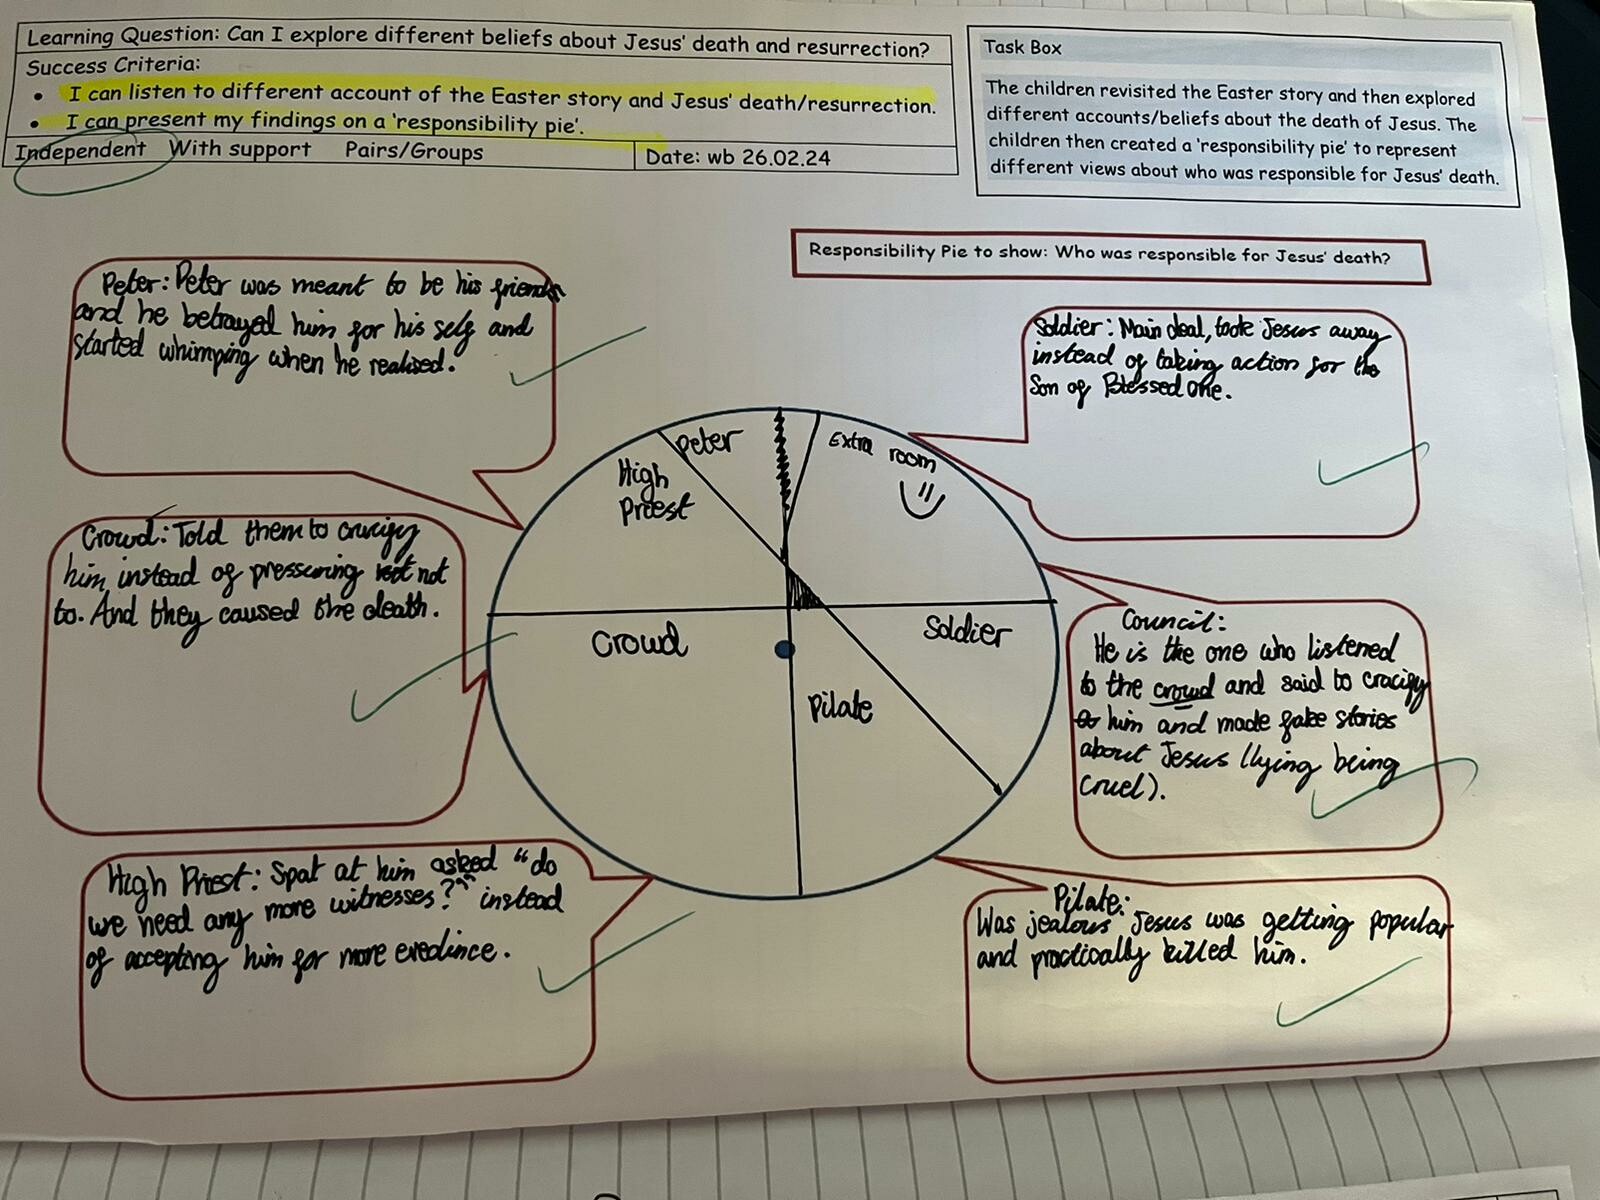 Learning Question: Can I explore different beliefs about Jesus' death and resurrection?
Success Criteria:
• I can listen to different account of the Easter story and Jesus' death/resurrection.
• I can present my findings on a 'responsibility pie'.
Independent With support Pairs/Groups
Date: wb 26.02.24
Task Box
The children revisited the Easter story and then explored
different accounts/beliefs about the death of Jesus. The
children then created a 'responsibility pie' to represent
different views about who was responsible for Jesus' death.
Responsibility Pie to show: Who was responsible for Jesus' death?
Peter: Peter was meant to be his friends
and he betrayed him for his self and
started whimping when he realised.
Soldier: Main deal, took Jesus away
instead of taking action for the
Son of Blessed one.
Crowd: Told them to crucify
him, instead of pressuring not
to. And they caused the death.
Council:
He is the one who listened
to the crowd and said to cracify
him and made fake stories
about Jesus (lying being
cruel).
High Priest: Spat at him asked "do
we need any more witnesses?" instead
of accepting him for more evedince.
Pilate:
Was jealous Jesus was getting popular
and practically killed him.
Peter
High
Priest
Extra room
Crowd
Soldier
Pilate